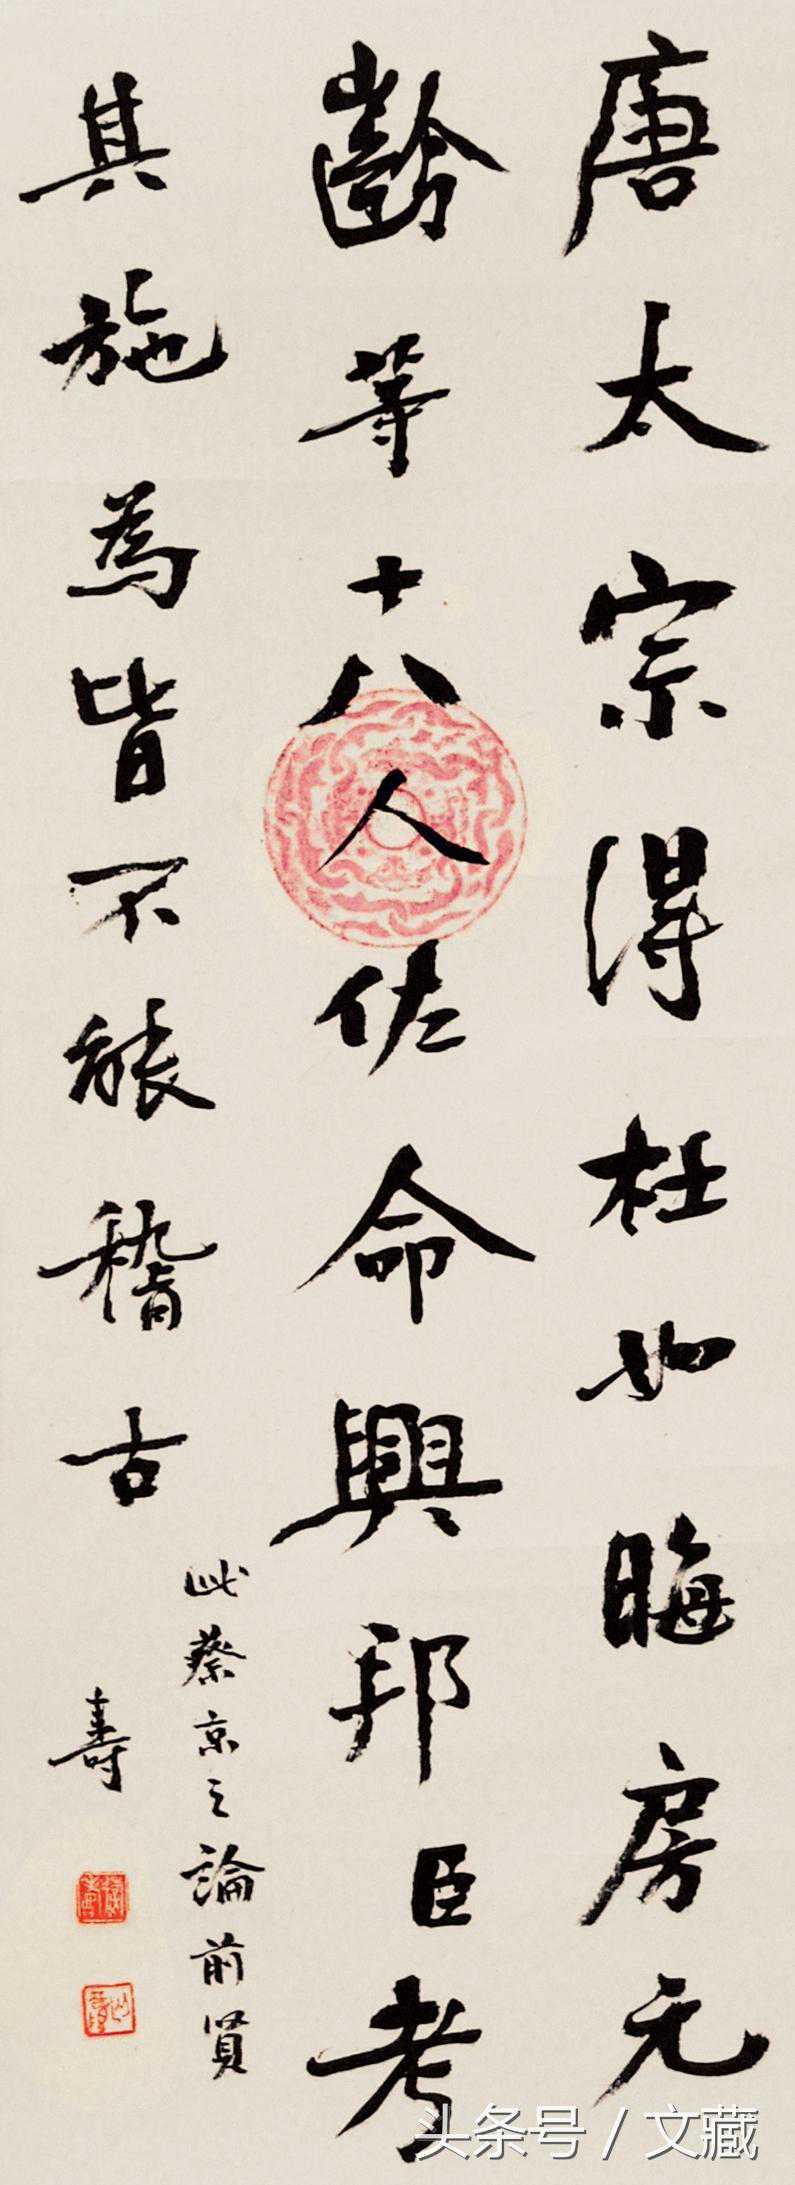 唐太宗得杜如晦房元
齡等十八人佐命興邦臣考
其施為皆不能稽古
此蔡京之論前賢
壽
头条号 / 文藏